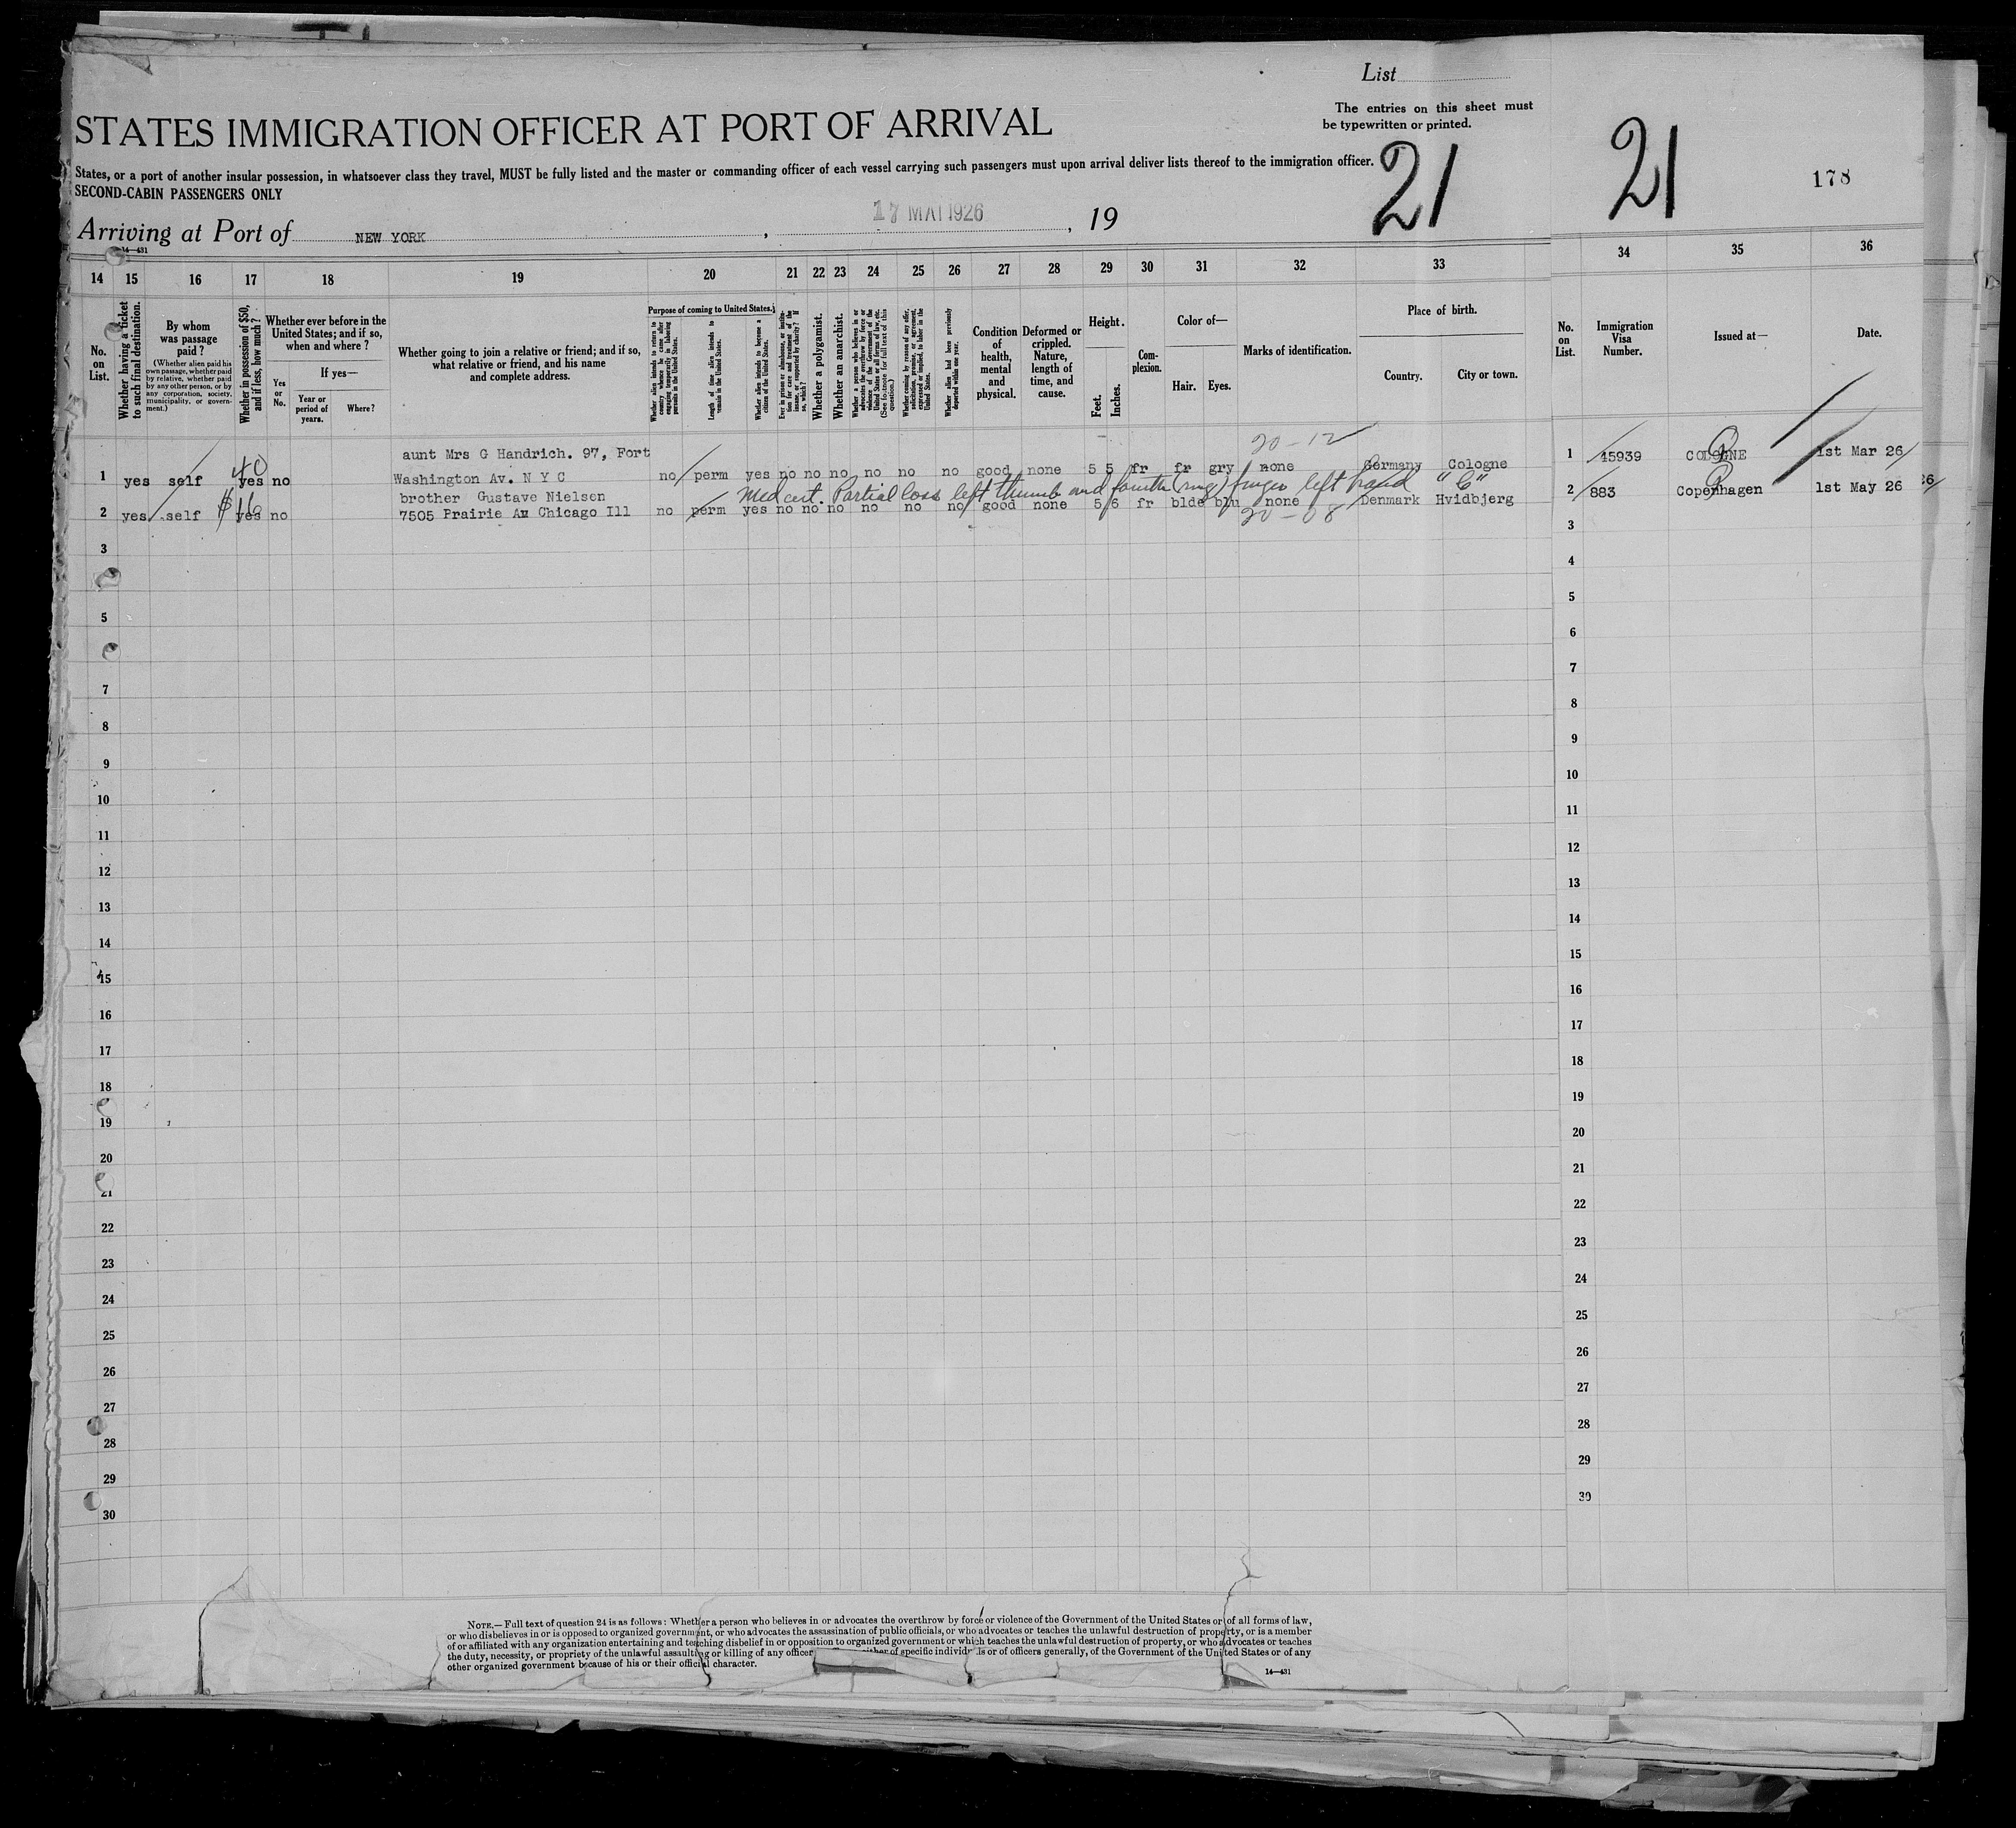 List
The entries on this sheet must
be typewritten or printed.
STATES IMMIGRATION OFFICER AT PORT OF ARRIVAL
States, or a port of another insular possession, in whatsoever class they travel, MUST be fully listed and the master or commanding officer of each vessel carrying such passengers must upon arrival deliver lists thereof to the immigration officer.
SECOND-CABIN PASSENGERS ONLY
21
21
178
Arriving at Port of NEW YORK , 17 MAI 1926 , 19
14—431
14 15 16 17 18 19 20 21 22 23 24 25 26 27 28 29 30 31 32 33 34 35 36
No. on List.
Whether having a ticket to such final destination.
By whom was passage paid?
(Whether alien paid his own passage, whether paid by relative, whether paid by any other person, or by any corporation, society, municipality, or government.)
Whether in possession of $50, and if less, how much?
Whether ever before in the United States; and if so, when and where?
Yes or No.
If yes—
Year or period of years.
Where?
Whether going to join a relative or friend; and if so, what relative or friend, and his name and complete address.
Purpose of coming to United States.
Whether alien intends to return to country whence he came after engaging temporarily in laboring pursuits in the United States.
Length of time alien intends to remain in the United States.
Whether alien intends to become a citizen of the United States.
Ever in prison or almshouse, or institution for care and treatment of the insane, or supported by charity? If so, which?
Whether a polygamist.
Whether an anarchist.
Whether a person who believes in or advocates the overthrow by force or violence of the Government of the United States or all forms of law, etc. (See footnote for full text of this question.)
Whether coming by reason of any offer, solicitation, promise, or agreement, expressed or implied, to labor in the United States.
Whether alien had been previously deported within one year.
Condition of health, mental and physical.
Deformed or crippled. Nature, length of time, and cause.
Height.
Feet. Inches.
Complexion.
Color of—
Hair. Eyes.
Marks of identification.
Place of birth.
Country. City or town.
No. on List.
Immigration Visa Number.
Issued at—
Date.
20-12
aunt Mrs G Handrich. 97, Fort
40
1 yes self yes no Washington Av. N Y C no perm yes no no no no no no good none 5 5 fr fr gry none Germany Cologne 1 45939 COLOGNE 1st Mar 26
Med cert. Partial loss left thumb and fourth (ring) finger left hand "C"
brother Gustave Nielsen
$16
2 yes self yes no 7505 Prairie Av Chicago Ill no perm yes no no no no no no good none 5 6 fr blde blu none Denmark Hvidbjerg 2 883 Copenhagen 1st May 26
20-08
3 3
4
5 5
6
7 7
8 8
9 9
10 10
11 11
12 12
13 13
14 14
15 15
16 16
17 17
18 18
19 19
20 20
21 21
22 22
23 23
24 24
25 25
26 26
27 27
28 28
29 29
30 30
NOTE.—Full text of question 24 is as follows: Whether a person who believes in or advocates the overthrow by force or violence of the Government of the United States or of all forms of law,
or who disbelieves in or is opposed to organized government, or who advocates the assassination of public officials, or who advocates or teaches the unlawful destruction of property, or is a member
of or affiliated with any organization entertaining and teaching disbelief in or opposition to organized government or which teaches the unlawful destruction of property, or who advocates or teaches
the duty, necessity, or propriety of the unlawful assaulting or killing of any officer either of specific individuals or of officers generally, of the Government of the United States or of any
other organized government because of his or their official character.
14—431